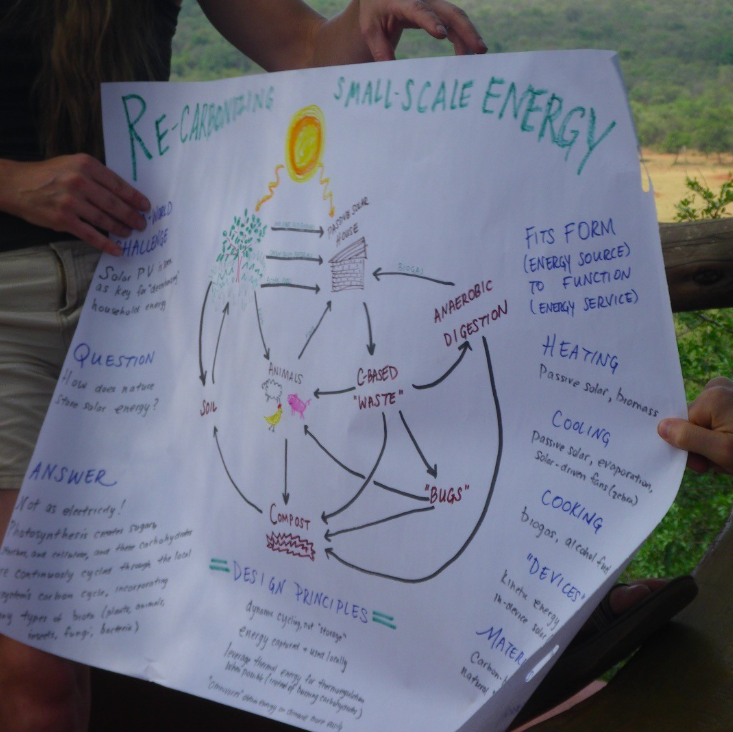 RE-CARBONIZING SMALL-SCALE ENERGY
WORLD
CHALLENGE
Solar PV
as key for
household energy
QUESTION
How does nature
store solar energy?
ANSWER
Not as electricity!
Photosynthesis creates sugars
and these carbohydrates
continuously cycled through the local
carbon cycle, incorporating
types of biota (plants, animals,
fungi, bacteria)
PASSIVE SOLAR
HOUSE
BIOGAS
ANAEROBIC
DIGESTION
ANIMALS
C-BASED
"WASTE"
SOIL
"BUGS"
COMPOST
= DESIGN PRINCIPLES =
dynamic cycling, not "storage"
energy captured + used locally
leverage thermal energy for thermoregulation
when possible (instead of burning carbohydrates)
FITS FORM
(ENERGY SOURCE)
TO FUNCTION
(ENERGY SERVICE)
HEATING
Passive solar, biomass
COOLING
passive solar, evaporation,
solar-driven fans
COOKING
biogas, alcohol
"DEVICES"
kinetic energy
in-device
MATER
Carbon-
natural